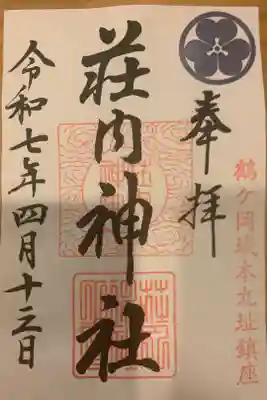 鶴ケ岡城本丸址鎮座
奉拝
荘内神社
令和七年四月十三日